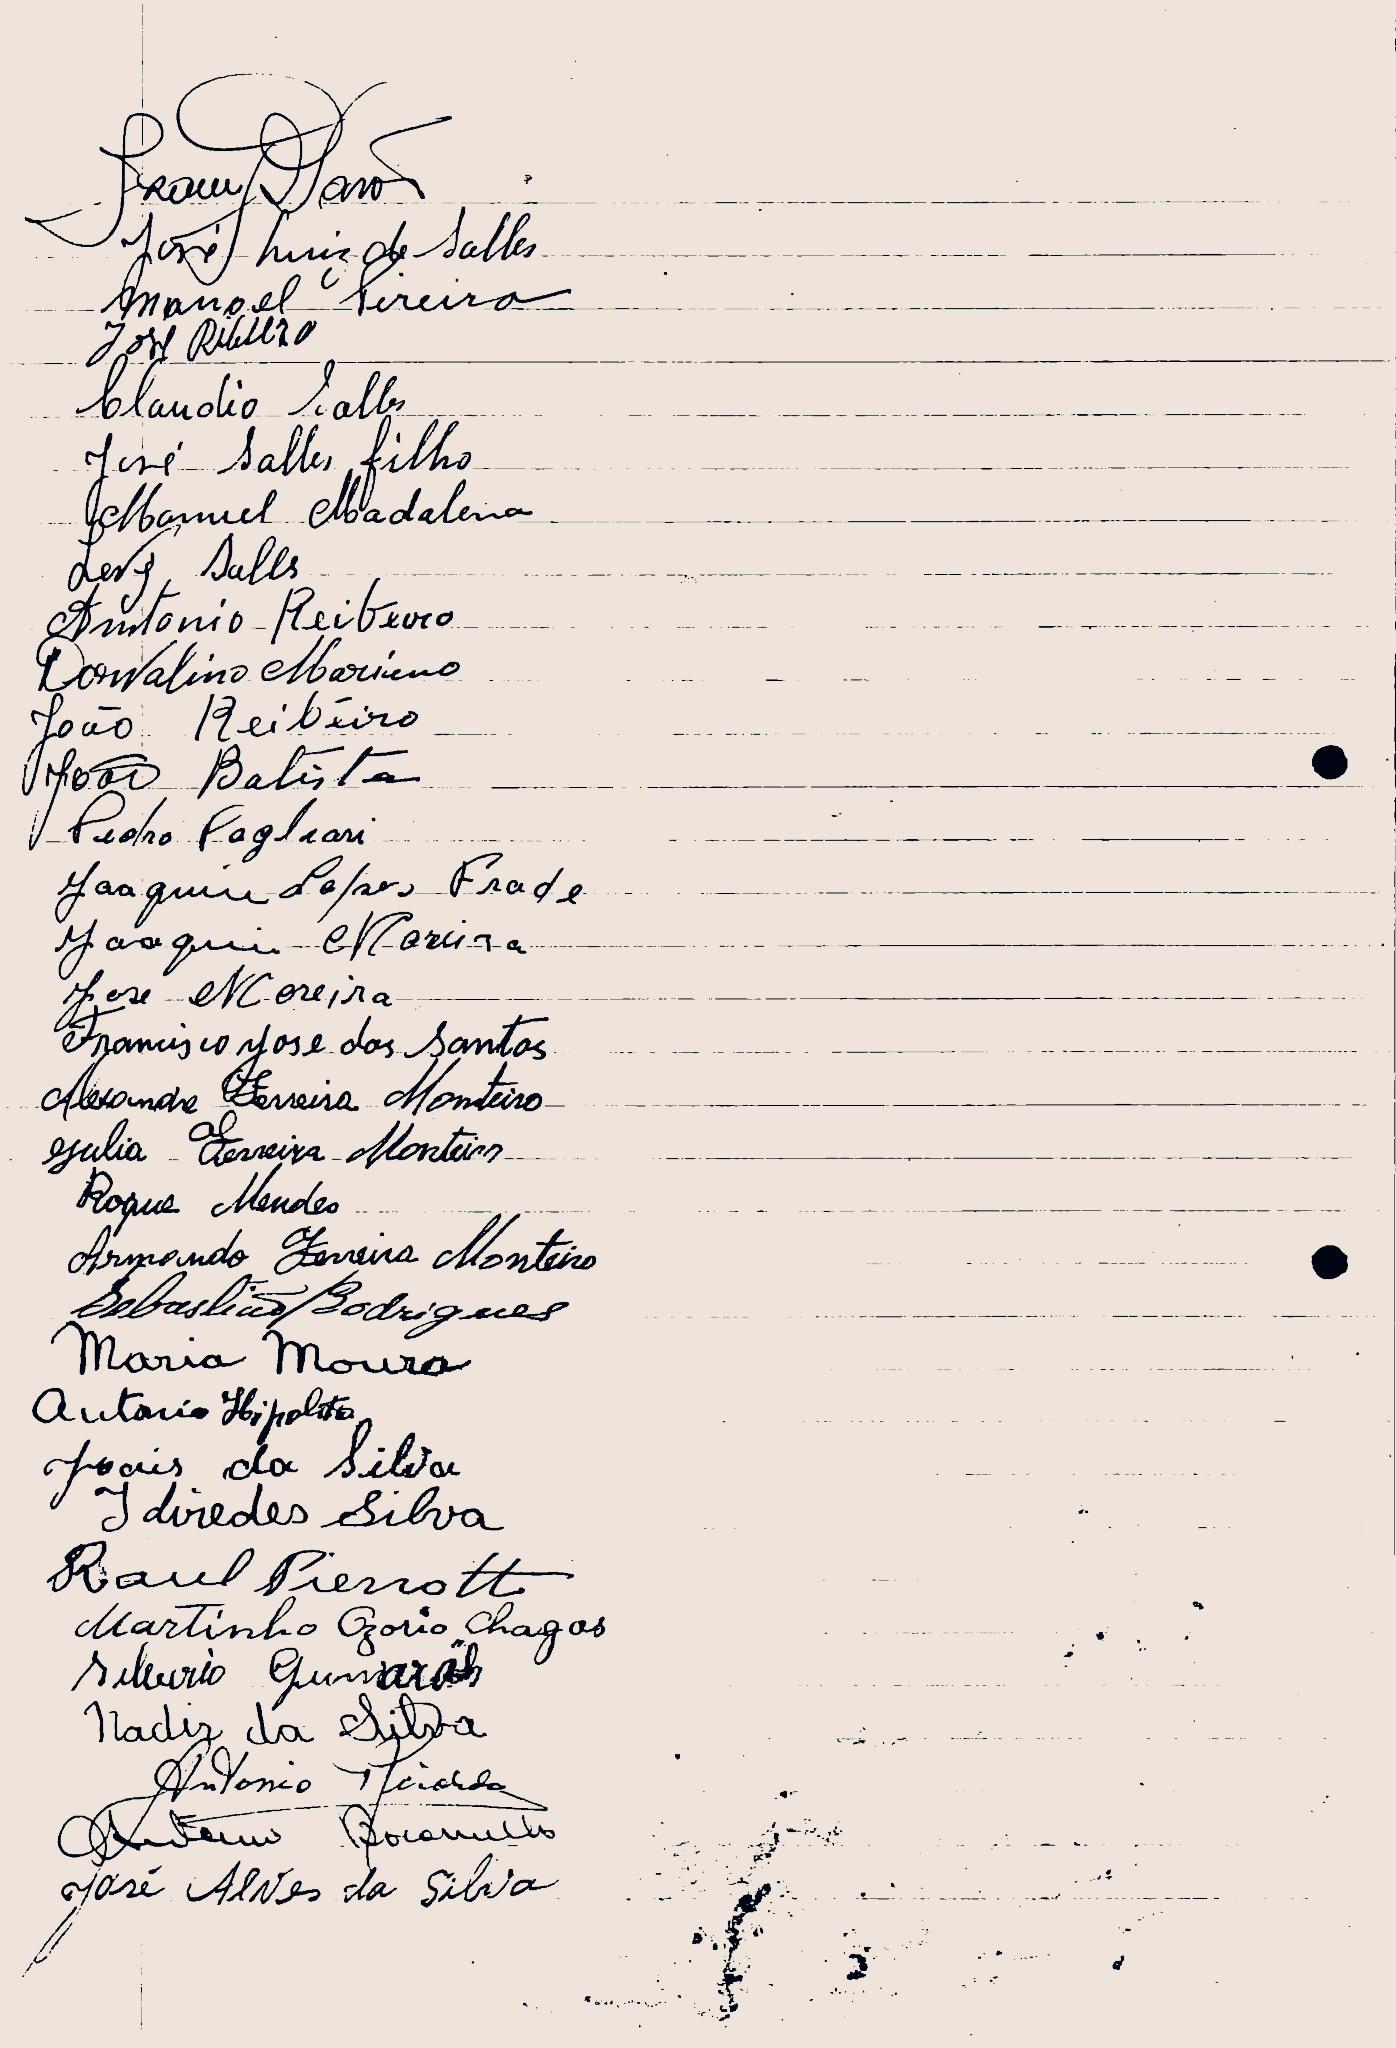 José Luiz de Salles
Manoel Pereira
José Ribeiro
Claudio Salles
José Salles filho
Manuel Madalena
Levy Salls
Antonio Reibeiro
Dorvalino Mariano
João Reibeiro
João Batista
Pedro Pagliari
Joaquim Lopes Frade
Joaquim Moreira
Jose Moreira
Francisco Jose dos Santos
Alexandre Ferreira Monteiro
Julia Ferreira Monteiro
Roque Mendes
Armando Ferreira Monteiro
Sebastião Rodrigues
Maria Moura
Antonio Hipolito
da Silva
Idivedes Silva
Raul Pierrotti
Martinho Ozorio Chagas
Silverio Gumarães
Nadir da Silva
Antonio
Antonio
José Alves da Silva